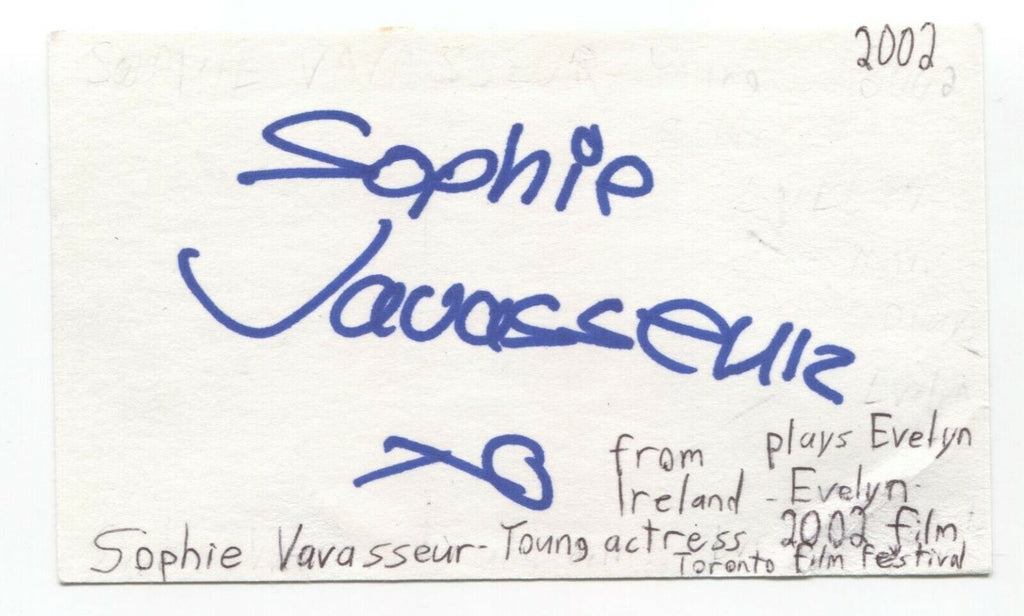 2002
Sophie
Vavasseur
XO
from plays Evelyn
Ireland - Evelyn -
Sophie Vavasseur - Young actress 2002 film
Toronto film festival